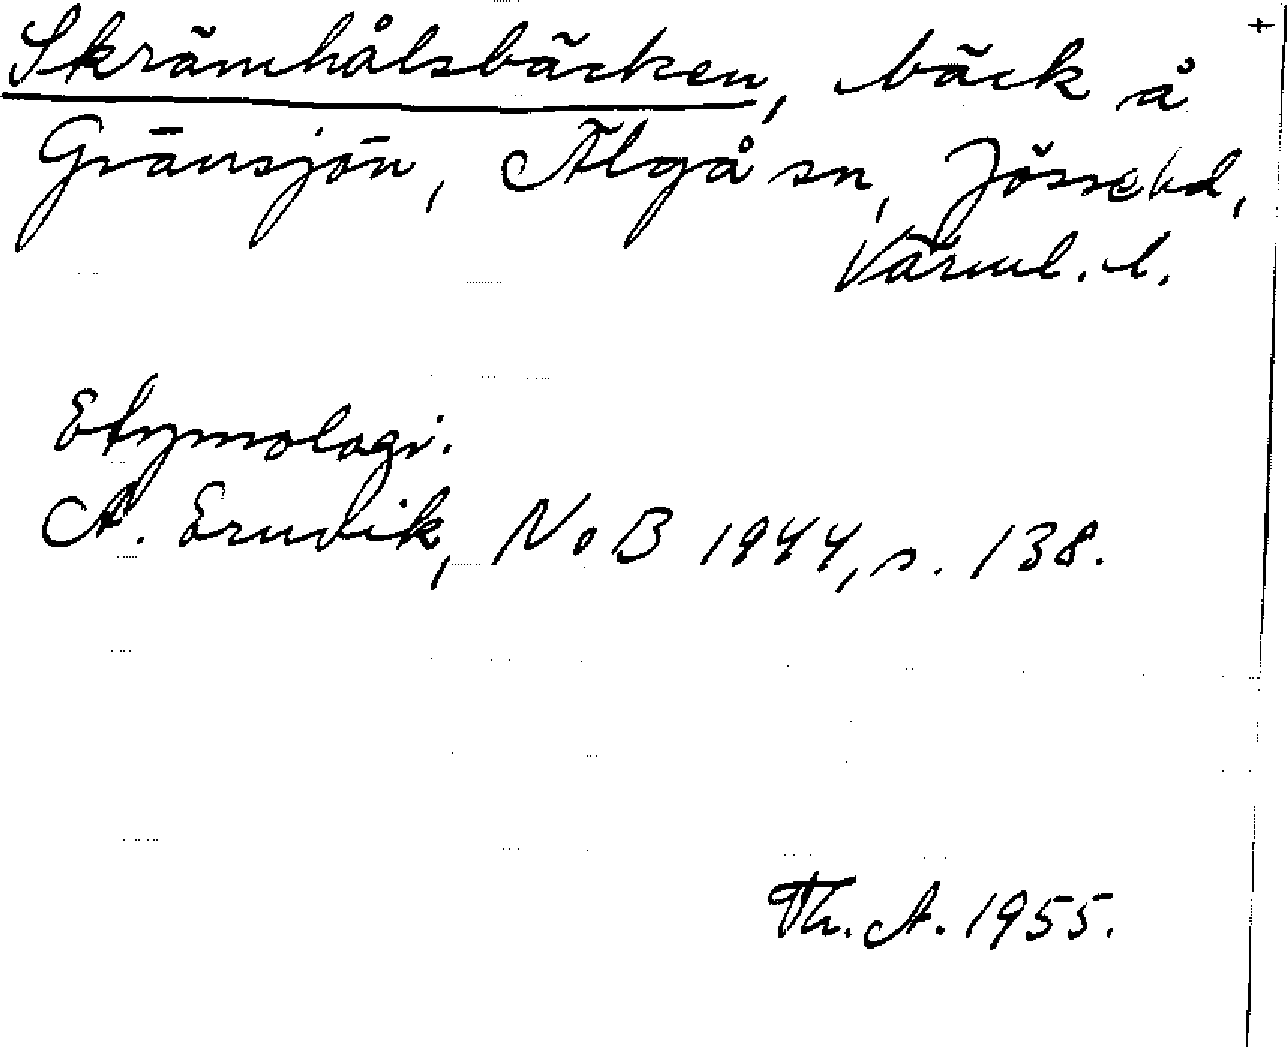 Skrämhålsbäcken, bäck å +
Gränsjön, Älgå sn, Jösse hd,
Värml. l.
Etymologi.
A. Ernvik, NoB 1944, s. 138.
Th. A. 1955.